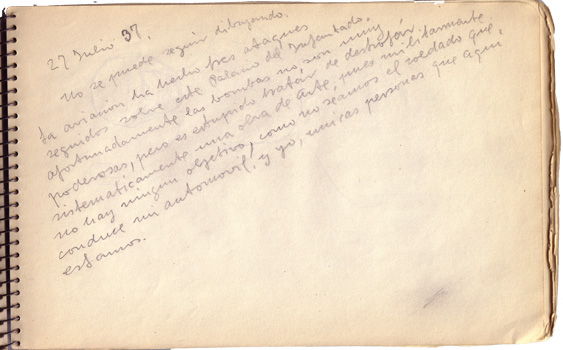 27 Julio 37.
No se puede seguir dibujando.
La aviación ha hecho tres ataques
seguidos sobre este Palacio del Infantado.
afortunadamente las bombas no son muy
poderosas, pero es estupido tratar de destrozar
sistematicamente una obra de arte, pues militarmente
no hay ningun objetivo, como no seamos el soldado que
conduce mi automovil, y yo, unicas personas que aqui
estamos.